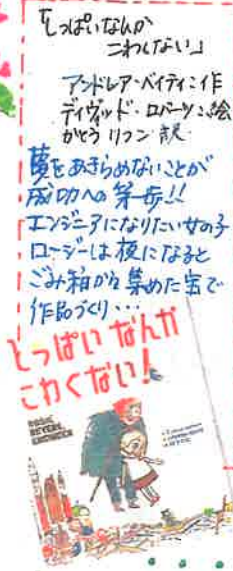 「しっぱいなんか
こわくない」
アンドレア・ベイティ:作
デイヴィッド・ロバーツ:絵
かとう りつこ:訳
夢をあきらめないことが
成功への第一歩!!
エンジニアになりたい女の子
ロージーは夜になると
ごみ箱から集めた宝で
作品づくり・・・
しっぱい なんか
こわくない!
ROSIE
REVERE,
ENGINEER